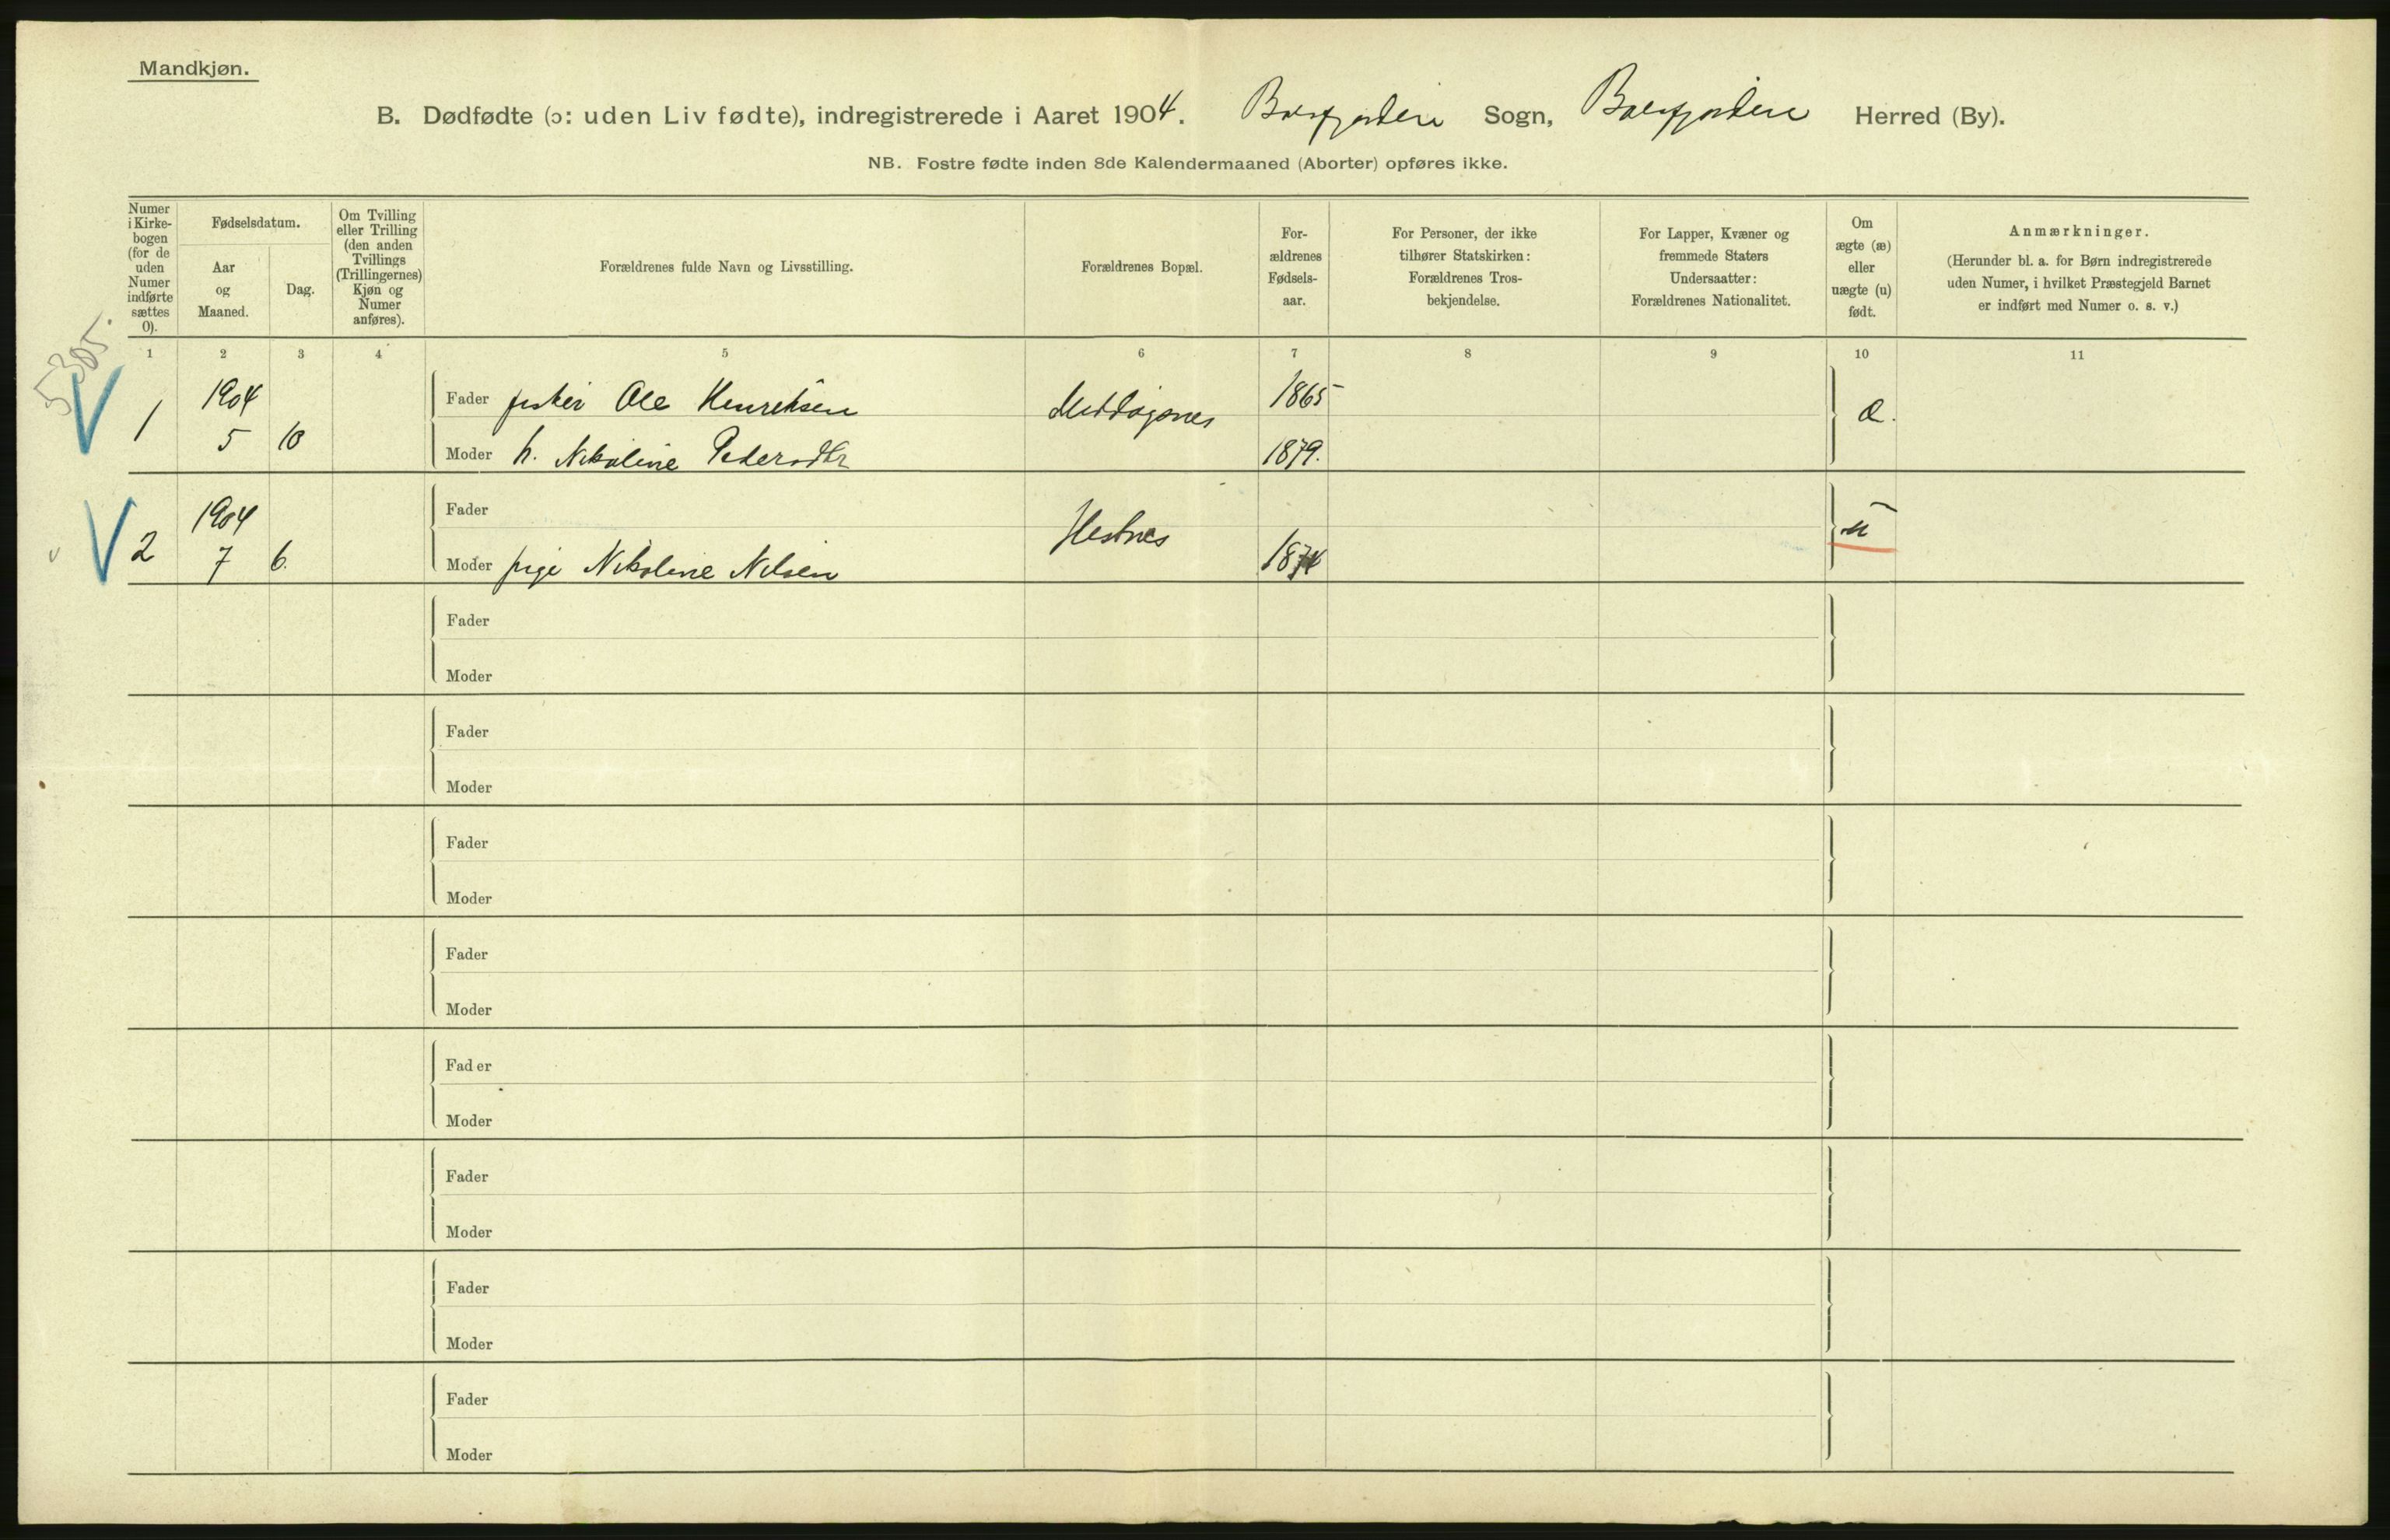 Mandkjøn.
B. Dødfødte (ɔ: uden Liv fødte), indregistrerede i Aaret 1904. Balsfjorden Sogn, Balsfjorden Herred (By).
NB. Fostre fødte inden 8de Kalendermaaned (Aborter) opføres ikke.
Numer
i Kirke-
bogen
(for de
uden
Numer
indførte
sættes
0).
Fødselsdatum.
Aar
og
Maaned.
Dag.
Om Tvilling
eller Trilling
(den anden
Tvillings
(Trillingernes)
Kjøn og
Numer
anføres).
Forældrenes fulde Navn og Livsstilling.
Forældrenes Bopæl.
For-
ældrenes
Fødsels-
aar.
For Personer, der ikke
tilhører Statskirken:
Forældrenes Tros-
bekjendelse.
For Lapper, Kvæner og
fremmede Staters
Undersaatter:
Forældrenes Nationalitet.
Om
ægte (æ)
eller
uægte (u)
født.
Anmærkninger.
(Herunder bl. a. for Børn indregistrerede
uden Numer, i hvilket Præstegjeld Barnet
er indført med Numer o. s. v.)
5305.
1 2 3 4 5 6 7 8 9 10 11
1904 Fader fisker Ole Henriksen 1865
1 Middagsnes æ.
5 10 Moder h. Nikoline Pedersdtr 1879.
1904 Fader
2 Hestnes u
7 6. Moder pige Nikoline Nilsen 1874
Fader
Moder
Fader
Moder
Fader
Moder
Fader
Moder
Fader
Moder
Fader
Moder
Fader
Moder
Fader
Moder